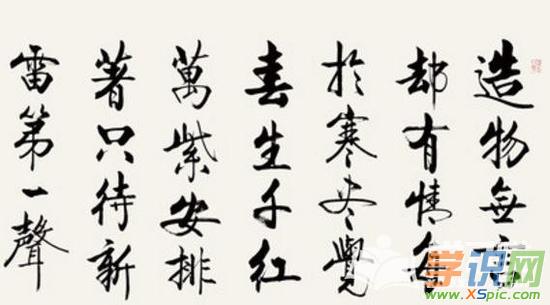 造物無言
却有情每
於寒尽覺
春生千红
萬紫安排
著只待新
雷第一聲
学识网
www.XSpic.com